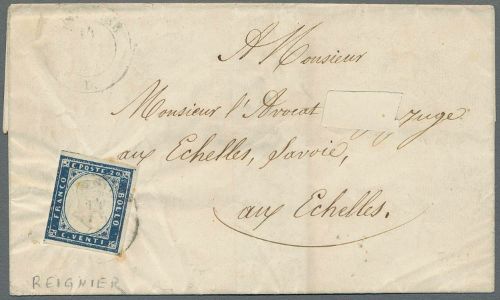 A Monsieur
Monsieur l'Avocat
aux Echelles, Savoie,
aux Echelles.
C. POSTE 20
FRANCO
BOLLO
C. VENTI
REIGNIER